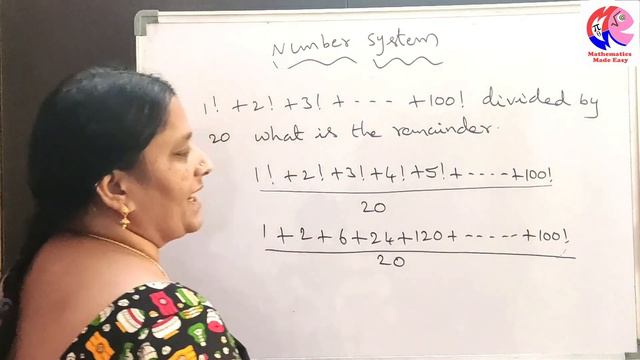 Mathematics
Made Easy
Number System
1! + 2! + 3! + --- + 100! divided by
20 what is the remainder.
1! + 2! + 3! + 4! + 5! + ----- + 100!
20
1 + 2 + 6 + 24 + 120 + ----- + 100!
20